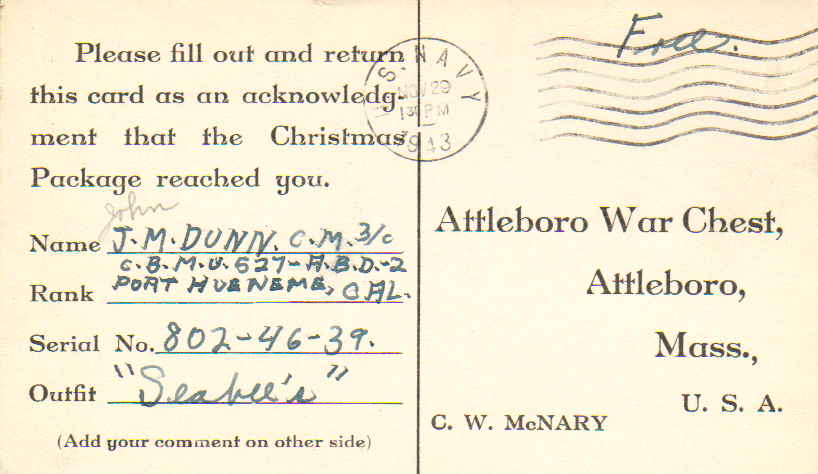 Please fill out and return
this card as an acknowledg-
ment that the Christmas
Package reached you.
John
Name J. M. DUNN. C. M. 3/c
C. B. M. U. 527-A.B.D.-2
Rank PORT HUENEME, CAL.
Serial No. 802-46-39.
Outfit "Seabee's"
(Add your comment on other side)
U.S. NAVY
NOV 29
130 PM
1943
Free.
Attleboro War Chest,
Attleboro,
Mass.,
U. S. A.
C. W. McNARY